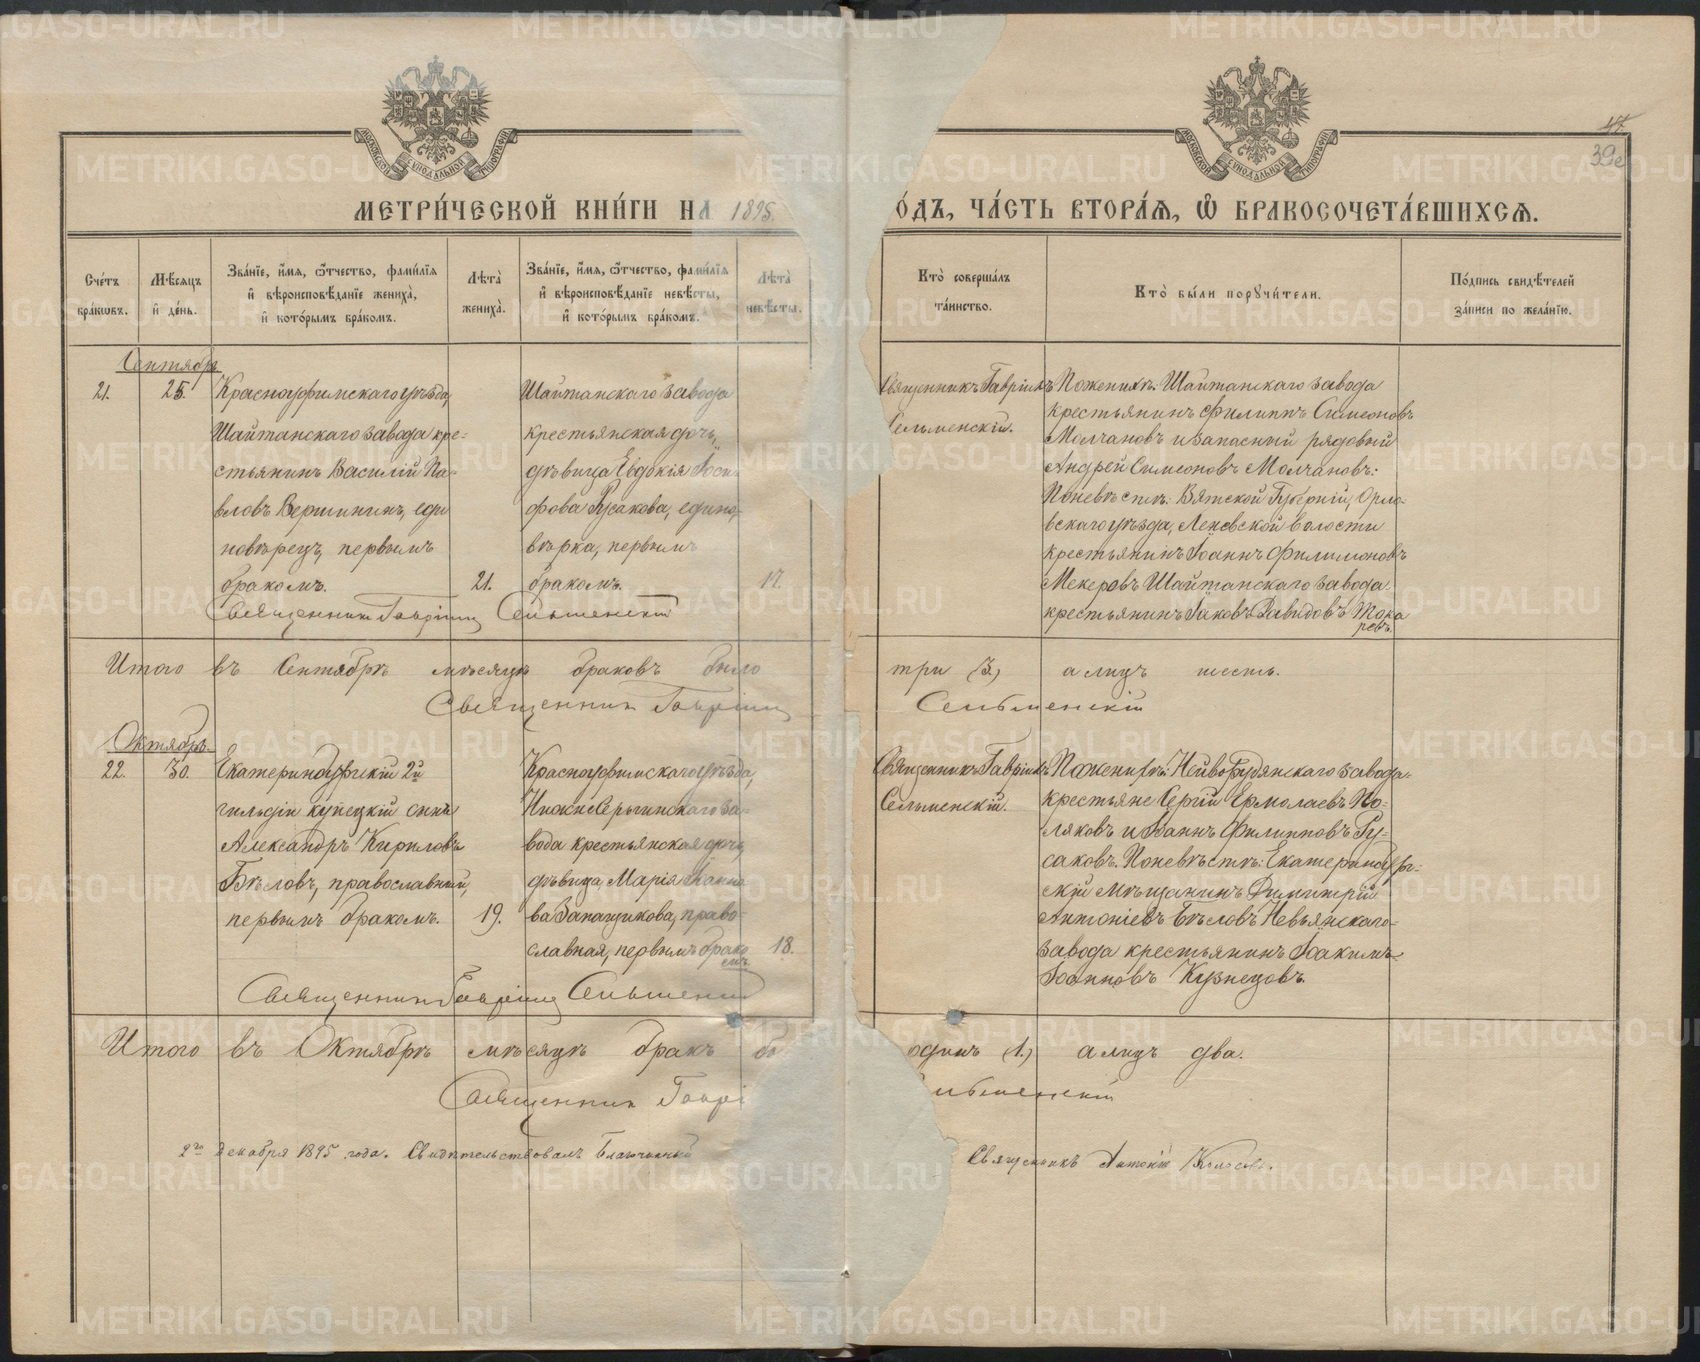 47.
39е
МОСКОВСКОЙ СѴНОДАЛЬНОЙ ТИПОГРАФІИ
МОСКОВСКОЙ СѴНОДАЛЬНОЙ ТИПОГРАФІИ
МЕТРИ́ЧЕСКОЙ КНИ́ГИ НА 1895. О́ДЪ, ЧА́СТЬ ВТОРА́Ѧ, Ѽ БРАКОСОЧЕТА́ВШИХСѦ.
Сче́тъ
бра́кѡвъ.
Мѣ́сѧцъ
и҆ де́нь.
Зва́нїе, и҆́мѧ, ѻ҆́тчество, фами́лїѧ
и҆ вѣроисповѣ́данїе жениха̀,
и҆ кото́рымъ бра́комъ.
Лѣта̀
жениха̀.
Зва́нїе, и҆́мѧ, ѻ҆́тчество, фами́лїѧ
и҆ вѣроисповѣ́данїе невѣ́сты,
и҆ кото́рымъ бра́комъ.
Лѣта̀
невѣ́сты.
Кто̀ соверша́лъ
та́инство.
Кто̀ бы́ли порꙋчи́тели.
По́дпись свидѣ́телей
за́писи по жела́нїю.
Сентябрь
21.
25.
Красноуфимскаго уѣзда,
Шайтанскаго завода кре-
стьянинъ Василій Па-
вловъ Вершининъ, еди
новѣрецъ, первымъ
бракомъ.
21.
Шайтанскаго завода
крестьянская дочь,
дѣвица Евдокія Іоси
фова Русакова, едино-
вѣрка, первымъ
бракомъ.
17.
Священникъ Гавріилъ
Сельменскій.
По женихѣ: Шайтанскаго завода
крестьянинъ Филиппъ Симеоновъ
Молчановъ и запасный рядовый
Андрей Симеоновъ Молчановъ:
По невѣстѣ: Вятской Губерніи, Орло-
вскаго уѣзда, волости
крестьянинъ Іоаннъ Филимоновъ
Мекеровъ Шайтанскаго завода
крестьянинъ Іаковъ Давидовъ Тока
ревъ.
Священникъ Гавріилъ Сельменскій
Итого въ Сентябрѣ мѣсяцѣ браковъ было три (3.) а лицъ шесть.
Священникъ Гавріилъ Сельменскій
Октябрь.
22.
30.
Екатеринбургскій 2й
гильдіи купецкій сынъ
Александръ Кириловъ
Бѣловъ, православный,
первымъ бракомъ.
19.
Красноуфимскаго уѣзда,
Нижнесергинскаго за-
вода крестьянская дочь
дѣвица Марія Іоанно
ва Запащикова, право-
славная, первымъ брако
мъ.
18.
Священникъ Гавріилъ
Сельменскій.
По женихѣ: Нейворудянскаго завода
крестьяне Сергій Ермолаевъ По-
ляковъ и Іоаннъ Филипповъ Ру-
саковъ. По невѣстѣ: Екатеринбург-
скій мѣщанинъ Димитрій
Антоніевъ Бѣловъ Невьянскаго
завода крестьянинъ Іоакимъ
Іоанновъ Кузнецовъ.
Священникъ Гавріилъ Сельменскій
Итого въ Октябрѣ мѣсяцѣ бракъ бы одинъ (1.) а лицъ два.
Священникъ Гаврі льменскій
2го Декабря 1895 года. Свидѣтельствовалъ Благочинный Священникъ Антоній
METRIKI.GASO-URAL.RU